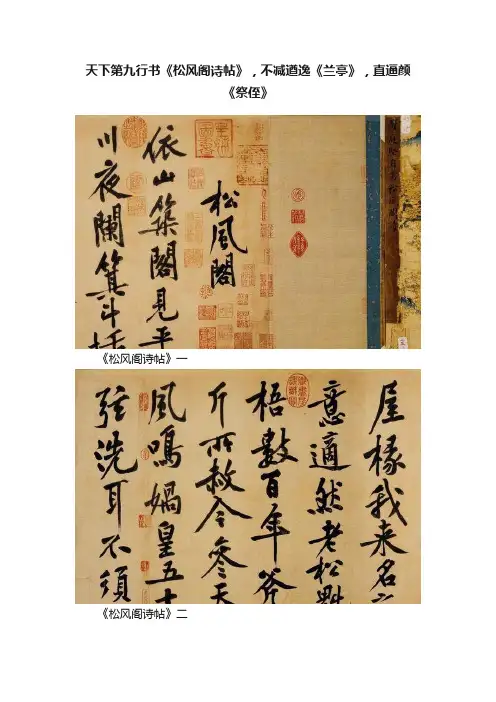 天下第九行书《松风阁诗帖》，不减遒逸《兰亭》，直逼颜
《祭侄》
松風閣
依山築閣見平
川夜闌箕斗插
《松风阁诗帖》一
屋椽我来名之
意適然老松魁
梧數百年斧
斤所赦今參天
風鳴媧皇五十
弦洗耳不須
《松风阁诗帖》二